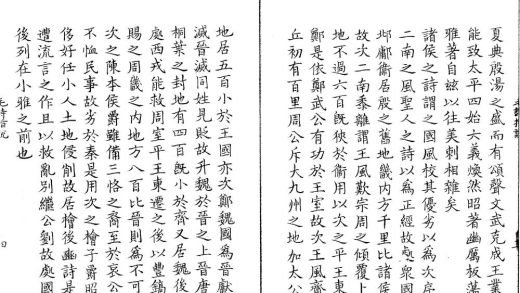 夏典殷湯之盛而有頌聲文武克成王業
能致太平四始六義煥然昭著幽厲板蕩
雅著自兹以往美刺相雜矣
諸侯之詩謂之國風校其優劣以為次序
二南之風聖人之詩以為正經故處衆國
邶鄘衞居殷之舊地畿内方千里比諸侯
故次二南黍離謂王風歎宗周之傾覆上
地不過六百既狹於衞用以次之平王東
鄭是依鄭武公有功於王室故次王風齊
丘初有百里周公斥大九州之地加太公
地居五百小於王國亦次鄭魏國為晉獻
滅晉滅同姓見貶故升魏於晉之上晉唐
桐葉之封地有四百既小於齊又居魏後
處西戎能救周室平王東遷之後以豐鎬
賜之周畿之内地方八百比晉則為不可
次之陳本侯爵雖備三恪之裔至於哀公
不恤民事故劣於秦是用次之檜子爵昭
侈好任小人土地侵削故居檜後豳詩是
遭流言之作且以救亂別繼公劉故處國
後列在小雅之前也